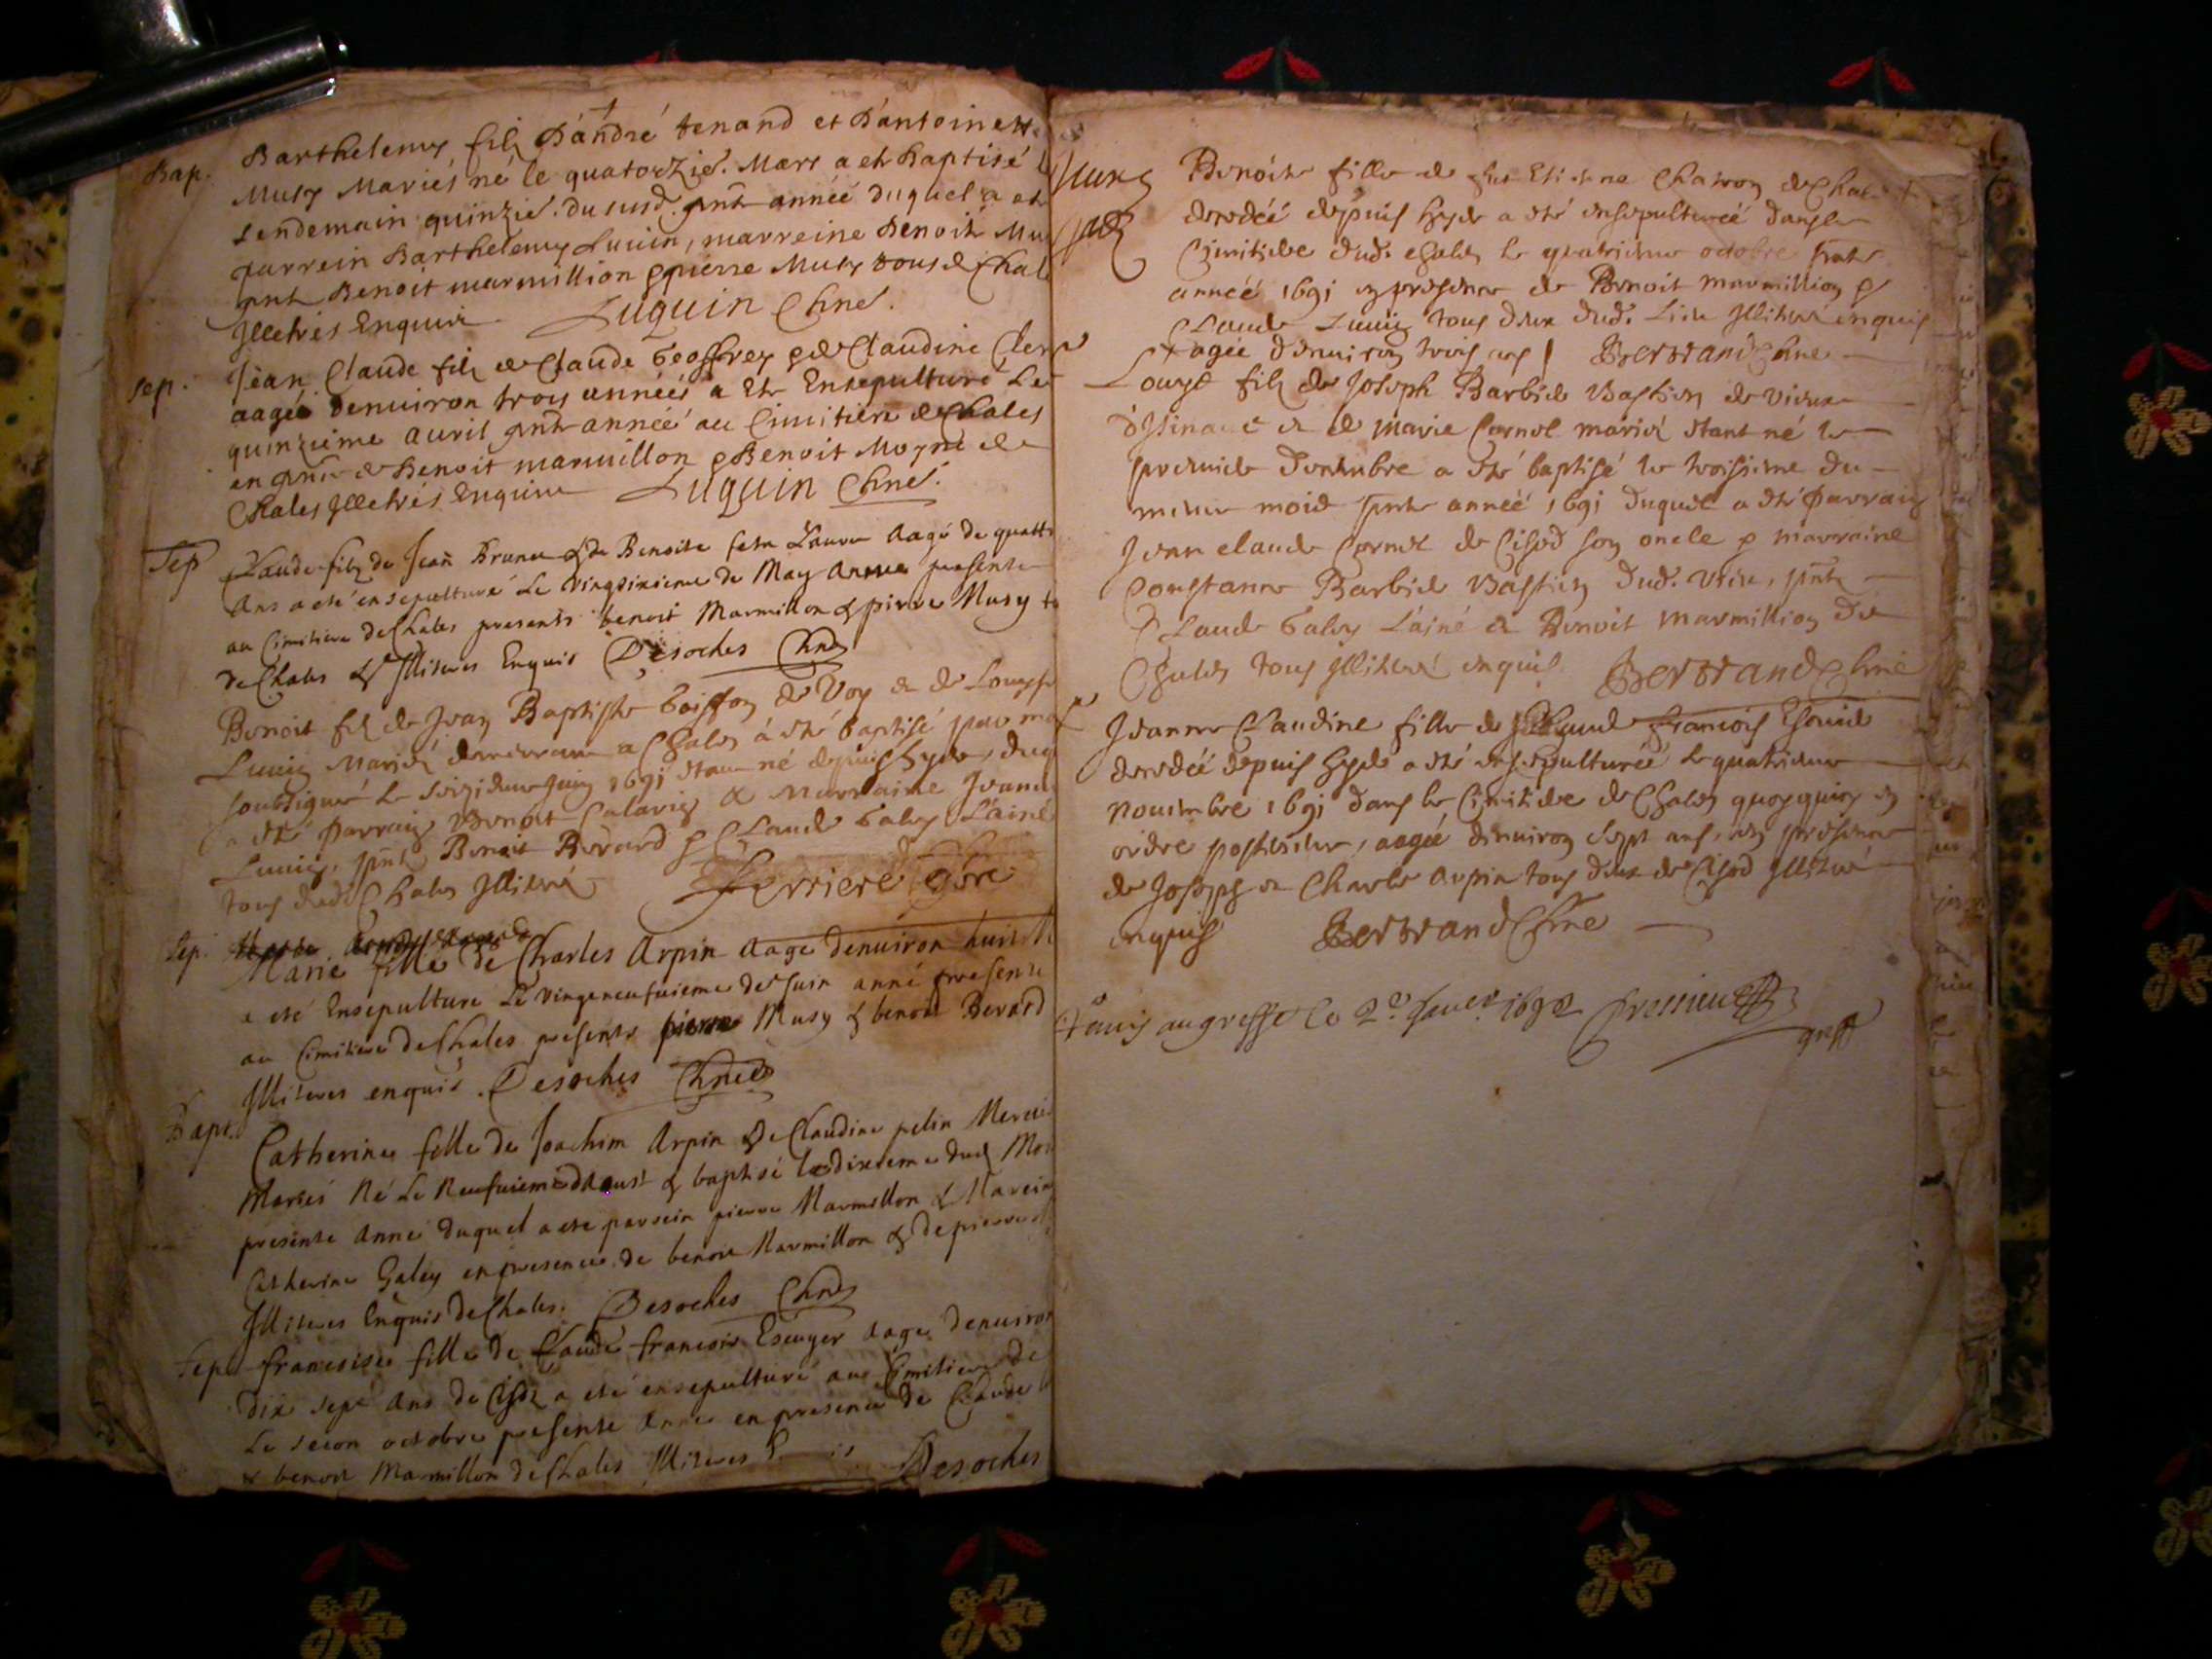 Bap. Barthelemy filz d'andré tenand et d'antoinett
Musy Mariés né le quatorzie. Mars a ete Baptisé l
lendemain quinzie. du susd. pnte année duquel a ete
parrein Barthelemy Luuin, marreine Benoite Mu
pnts Benoit marmillion & pierre Musy tous de Chal
Jlletrés Enquis Luquin Chne.
sep. Jean Claude filz de Claude Geoffrey & de Claudine Clerc
aagée denuiron trois années a Ete Ensepulturé Le
quinzieme auril pnte année au Cimitiere de Chales
en pnce de Benoit marmillon & Benoit Moyne de
Chales Jlletrés Enquis Luquin Chne.
Sep Claude filz de Jean Brunet & de Benoite Laure Aagé de quattr
Ans a eté ensepulturé Le Vingsixieme de May Année presente
au Cimitiere de Chales presents benoit Marmillon & pierre Musy to
de Chales & Jlliteres Enquis Desoches Chne
Benoit filz de Jean Baptiste de Voy & de Louyse
Luuin Mariés demeurant a Chales à eté baptisé par mo
soubsigné le seizieme Juin 1691 estant né depuis hyer, duq
a eté parrain Benoit & Marraine Jeanne
Luuin, pnts Benoit Berard & Claude Galey L'ainé
tous dud. Chales Jlliteré Ferriere
Sep. Marie fille de Charles Arpin Aage denuiron huit
a eté Ensepulturé Le Vingneufuieme de Juin anné presente
au Cimitiere de Chales presents pierre Musy & benoit Berard
Jlliteres enquis. Desoches Chne
Bapt. Catherine fille de Joachim Arpin & de Claudine pelin Mercie
Mariés Né Le Neufuieme d'Aoust & baptisé le dixieme dud. Moi
presente Anné duquel a eté parrein pierre Marmillon & Marein
Catherine Galey en presence de benoit Marmillon & de pierre
Jlliteres Enquis de Chales. Desoches Chne
Sep francoise fille de Claude francois Escuyer Aage denuiron
dix sept Ans de Cisod a eté ensepulturé au Cimitiere de
Le secon octobre presente Année en presence de Claude
& benoit Marmillon de Chales Jlliteres Desoches
Benoite fille de feu Etienne Chatron de Chales
decedéé depuis hyer a eté ensepulturéé dans le
Cimitiere dud. Chales le quatrieme octobre pnte
annéé 1691 en presence de Benoit Marmillion &
Claude Luuin tous deux dud. Lieu Jlliteré enquis
+ agée denuiron trois ans Bertrand Chne
Louys filz de Joseph Barbier Bastien de vieux
d'Jsinaue & de Marie Cornet mariés estant né le
premier decembre a eté baptisé le troisieme du
mesme mois pnte annéé 1691 duquel a eté Parrain
Jean Claude Cornet de Cisod son oncle & marraine
Constance Barbier Bastien dud. vieu, pnts
Claude Galey L'ainé & Benoit Marmillion de
Chales tous Jlliteré enquis. Bertrand Chne
Jeanne Claudine fille de Claude francois Escuier
decedéé depuis hyer a eté ensepulturéé le quatrieme
nouembre 1691 dans le Cimitiere de Chales quoyquien
ordre posterieur, aagéé denuiron sept ans, en presence
de Joseph & Charle Arpin tous deux de Cisod Jlliteré
enquis Bertrand Chne
remis au greffe le 2e Januer 1692 greff